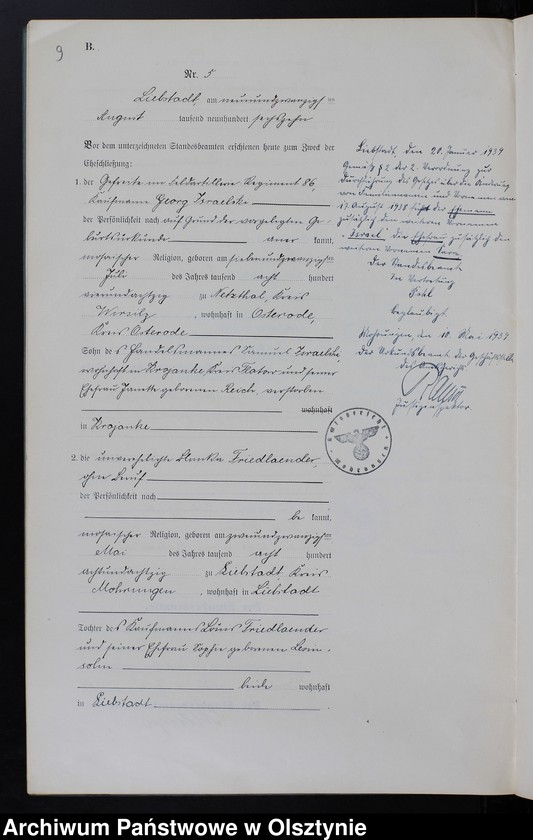 9
B.
Nr. 5
Liebstadt, am neunundzwanzigsten
August tausend neunhundert sechszehn
Vor dem unterzeichneten Standesbeamten erschienen heute zum Zweck der
Eheschließung:
1. der Gefreite im Feldartillerie Regiment 86,
Kaufmann Georg Israelske
der Persönlichkeit nach auf Grund der vorgelegten Ge-
burtsurkunde aner kannt,
mosaischer Religion, geboren am siebenundzwanzigsten
Juli des Jahres tausend acht hundert
vierundachtzig zu Netzthal, Kreis
Wirsitz, wohnhaft in Osterode,
Kreis Osterode
Sohn des Handelsmannes Samuel Israelske,
wohnhaft in Krojanke, Kreis Flatow und seiner
Ehefrau geborenen verstorben
wohnhaft
in Krojanke
2. die unverehelichte Franziska Friedlaender,
ohne Beruf
der Persönlichkeit nach
be kannt,
mosaischer Religion, geboren am zweiundzwanzigsten
Mai des Jahres tausend acht hundert
achtundachtzig zu Liebstadt, Kreis
Mohrungen, wohnhaft in Liebstadt
Tochter des Kaufmanns Louis Friedlaender
und seiner Ehefrau Sophie geborenen Lewin-
sohn
beide wohnhaft
in Liebstadt
Liebstadt, den 20. Januar 1939
Gemäß § 2 der 2. Verordnung zur
Durchführung des Gesetzes über die Änderung
von Familiennamen und Vornamen vom
17. August 1938 führt der Ehemann
zusätzlich den weiteren Vornamen
"Israel" die Ehefrau zusätzlich den
weiteren Vornamen Sara.
Der Standesbeamte
In Vertretung
Beglaubigt
Mohrungen, den 10. Mai 1939.
Der Urkundsbeamte der Geschäftsstelle
des Amtsgerichts
Justizinspektor
Amtsgericht
Mohrungen
Archiwum Państwowe w Olsztynie